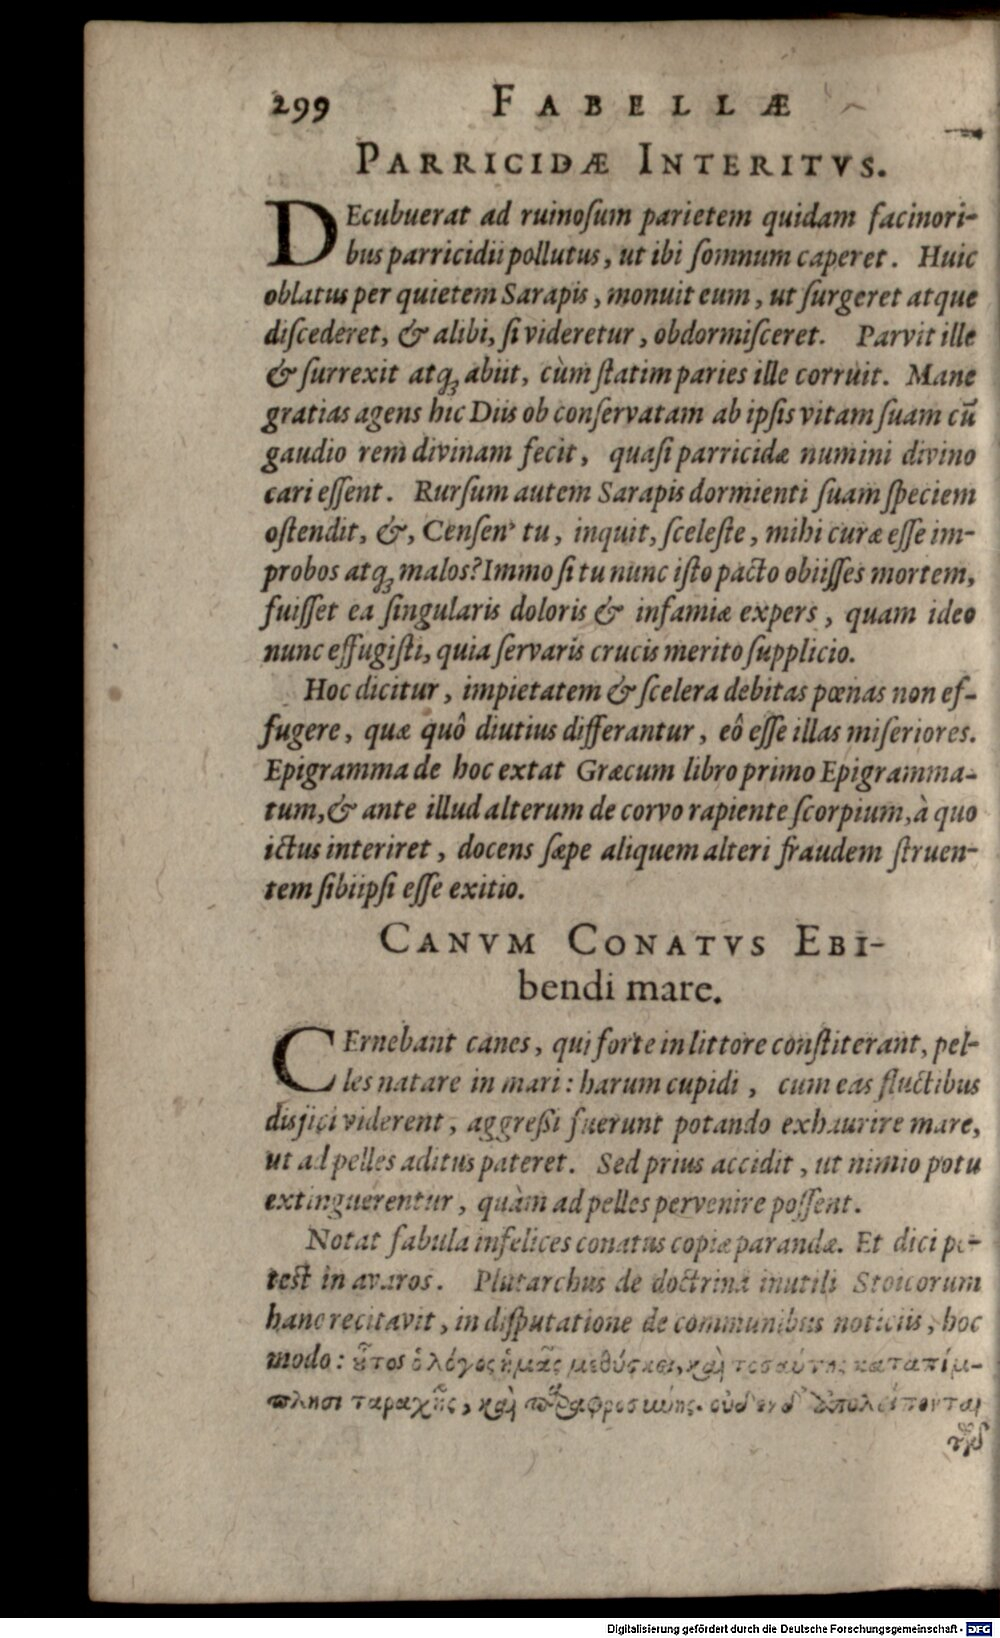 299 FABELLÆ
PARRICIDÆ INTERITVS.
DEcubuerat ad ruinoſum parietem quidam facinori-
bus parricidii pollutus, ut ibi ſomnum caperet. Huic
oblatus per quietem Sarapis, monuit eum, ut ſurgeret atque
diſcederet, & alibi, ſi videretur, obdormiſceret. Parvit ille
& ſurrexit atq́; abiit, cùm ſtatim paries ille corruit. Mane
gratias agens hic Diis ob conſervatam ab ipſis vitam ſuam cū
gaudio rem divinam fecit, quaſi parricidæ numini divino
cari eſſent. Rurſum autem Sarapis dormienti ſuam ſpeciem
oſtendit, &, Cenſen' tu, inquit, ſceleſte, mihi curæ eſſe im-
probos atq́; malos? Immo ſi tu nunc iſto pacto obiiſſes mortem,
fuiſſet ea ſingularis doloris & infamiæ expers, quam ideo
nunc effugiſti, quia ſervaris crucis merito ſupplicio.
Hoc dicitur, impietatem & ſcelera debitas pœnas non ef-
fugere, quæ quô diutius differantur, eô eſſe illas miſeriores.
Epigramma de hoc extat Græcum libro primo Epigramma-
tum, & ante illud alterum de corvo rapiente ſcorpium, à quo
ictus interiret, docens ſæpe aliquem alteri fraudem ſtruen-
tem ſibiipſi eſſe exitio.
CANVM CONATVS EBI-
bendi mare.
CErnebant canes, qui forte in littore conſtiterant, pel-
les natare in mari: harum cupidi, cum eas fluctibus
disjici viderent, aggreſſi fuerunt potando exhaurire mare,
ut ad pelles aditus pateret. Sed prius accidit, ut nimio potu
extinguerentur, quàm ad pelles pervenire poſſent.
Notat fabula infelices conatus copiæ parandæ. Et dici po-
teſt in avaros. Plutarchus de doctrina inutili Stoicorum
hanc recitavit, in diſputatione de communibus noticiis, hoc
modo: οὗτος ὁ λόγος ἡμᾶς μεθύσκει, καὶ τοσαύτης καταπίμ-
πλησι ταραχῆς, καὶ παραφροσύνης. οὐδὲν δ' ἀπολείπονται
τῶν
Digitalisierung gefördert durch die Deutsche Forschungsgemeinschaft - DFG